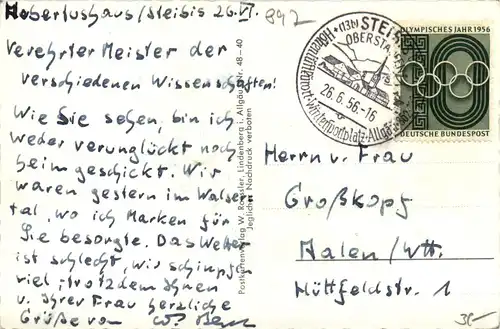 Hubertushaus/Steibis 26.VI.
Verehrter Meister der
verschiedenen Wissenschaften!
Wie Sie sehen, bin ich
weder verunglückt noch
heim geschickt. Wir
waren gestern im Walser
tal, wo ich Marken für
Sie besorgte. Das Wetter
ist schlecht, wir schimpfen
viel. Trotzdem Ihnen
u. Ihrer Frau herzliche
Grüße von
892
Postkartenverlag W. Roessler, Lindenberg i. Allgäu Nr. 48-40
Jeglicher Nachdruck verboten
(13b) STEIBIS
OBERSTAUFEN
Höhenluftkurort-Wintersportplatz-Allgäu
26.6.56.-16
OLYMPISCHES JAHR 1956
DEUTSCHE BUNDESPOST
Herrn u. Frau
Großkopf
Aalen/Wtt.
Hüttfeldstr. 1